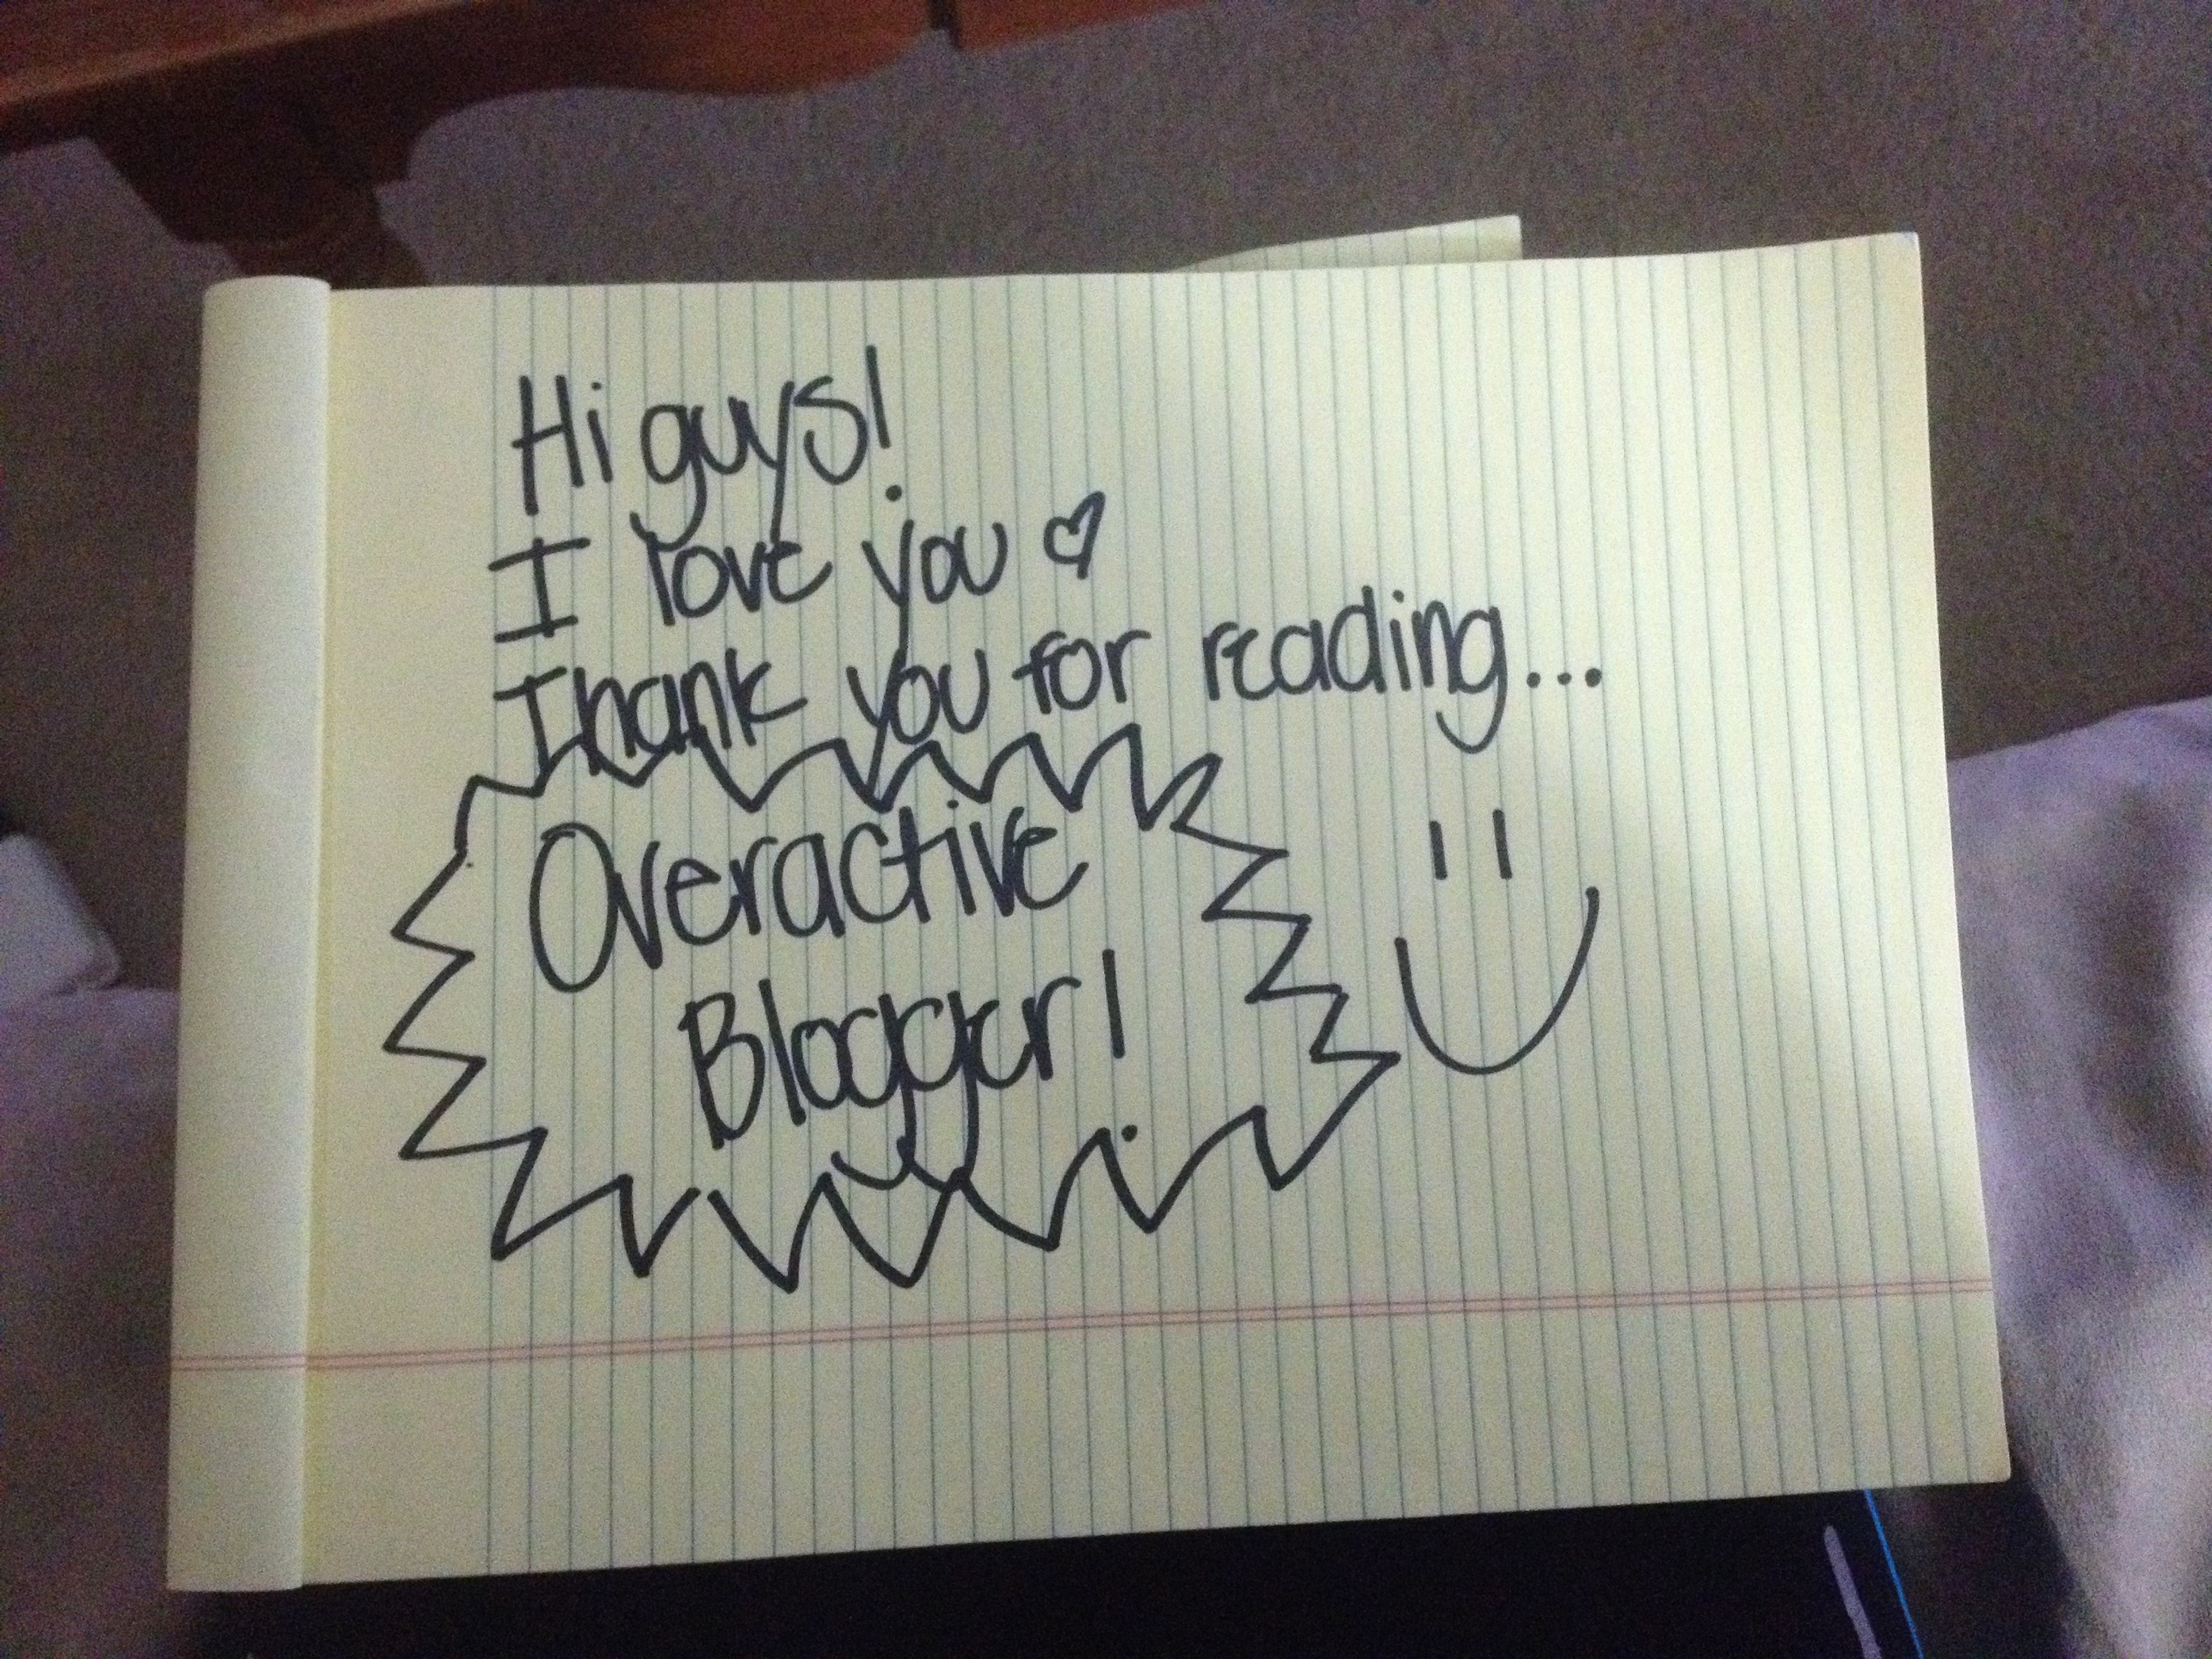 Hi guys!
I love you ♡
Thank you for reading...
Overactive
Blogger!